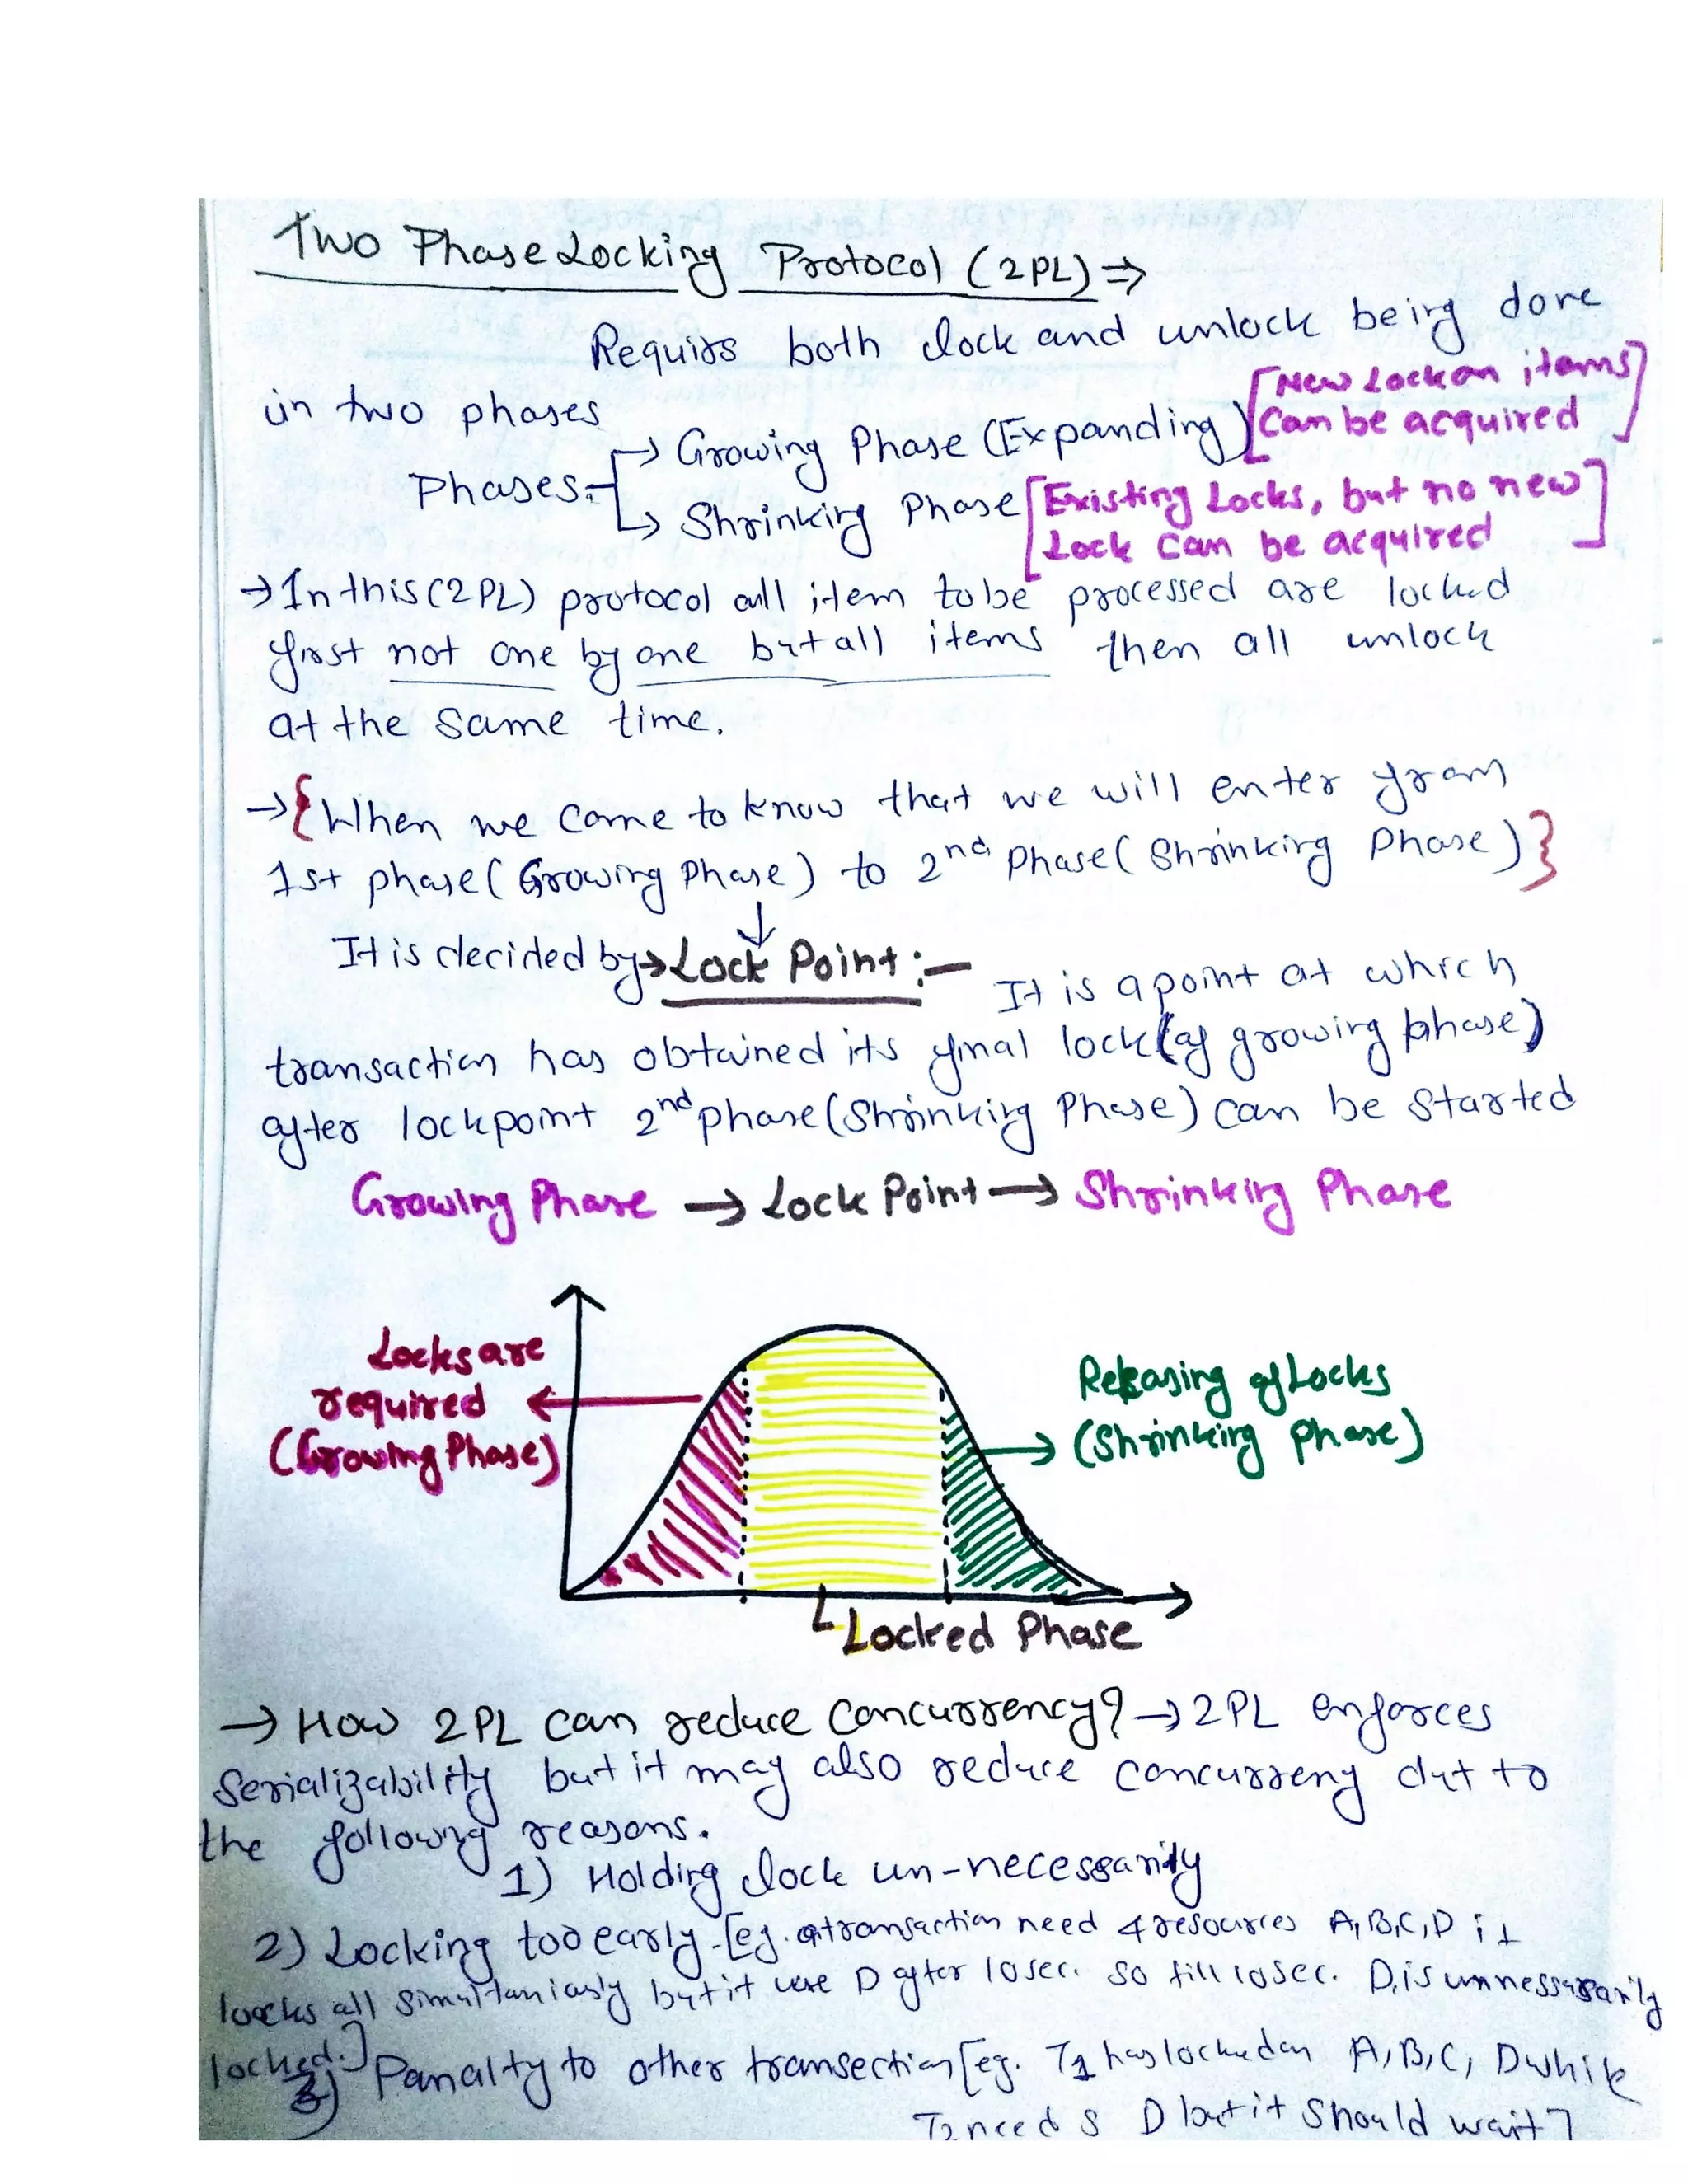 Two Phase Locking Protocol (2PL) ⇒
Requirs both lock and unlock being done
in two phases
Phases:- → Growing Phase (Expanding) [New Lock on items
Can be acquired]
→ Shrinking Phase [Existing Locks, but no new
Lock can be acquired]
→ In this (2PL) protocol all item to be processed are locked
first not one by one but all items then all unlock
at the same time.
→ {When we come to know that we will enter from
1st phase (Growing Phase) to 2nd Phase (Shrinking Phase)}
↓
It is decided by → Lock Point :— It is a point at which
transaction has obtained its final lock (of growing phase)
after lockpoint 2nd phase (Shrinking Phase) can be started
Growing Phase → Lock Point → Shrinking Phase
Locks are
required
(Growing Phase)
Releasing of Locks
(Shrinking Phase)
Locked Phase
→ How 2PL can reduce Concurrency? → 2PL enforces
Serializability but it may also reduce concurreny dut to
the following reasons.
1) Holding lock un-necessarily
2) Locking too early-[eg. a transaction need 4 resources A,B,C,D it
locks all simultaniously but it use D after 10 sec. so till 10 sec. D is unnessesarily
locked.]
3) Panalty to other transection [eg. T1 has locked on A,B,C, D while
T2 needs D but it should wait]